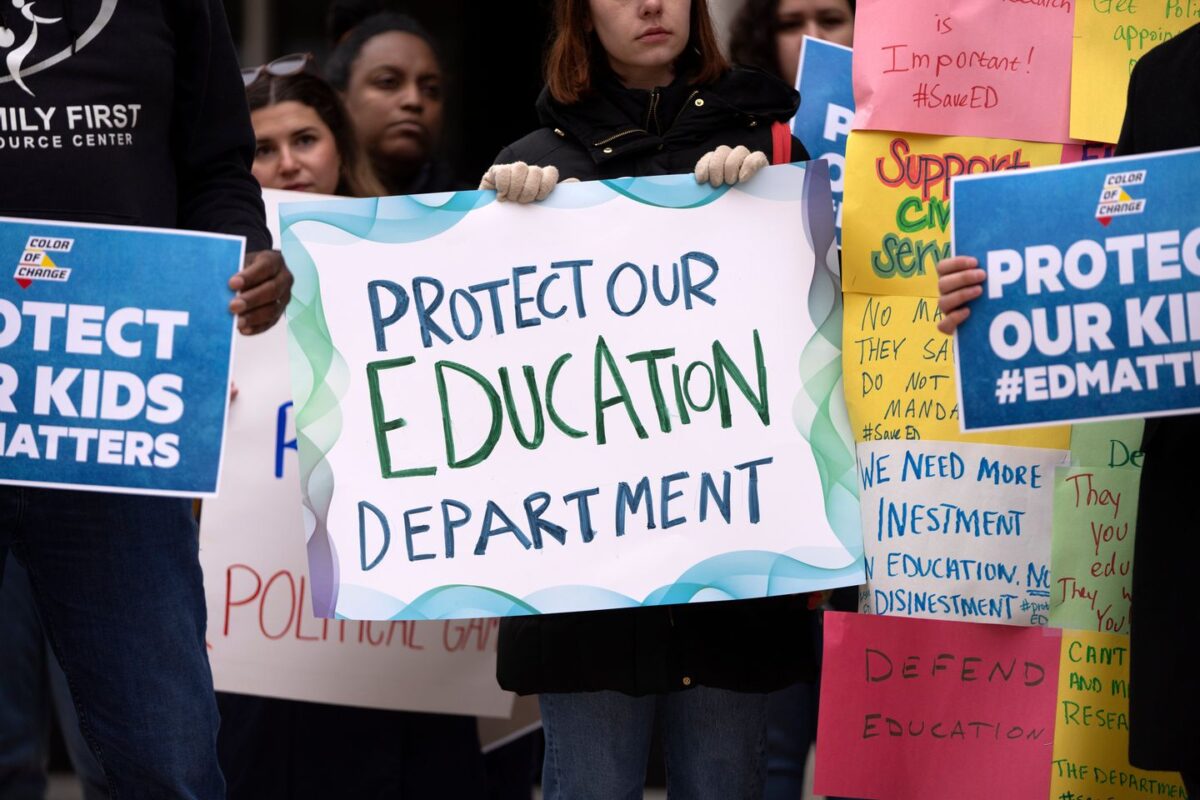 MILY FIRST
OURCE CENTER
COLOR
OF
CHANGE
OTECT
R KIDS
MATTERS
POLITICAL GAM
PROTECT OUR
EDUCATION
DEPARTMENT
is
Important!
#SaveED
Get
appoin
Support
Civ
Serv
NO MA
THEY SA
DO NOT
MANDA
#SaveED
WE NEED MORE
INESTMENT
N EDUCATION. NO
DISINESTMENT
They
you
edu
They w
You!
DEFEND
EDUCATION
CANT
AND M
RESEA
THE DEPARTMEN
COLOR
OF
CHANGE
PROTEC
OUR KI
#EDMATT